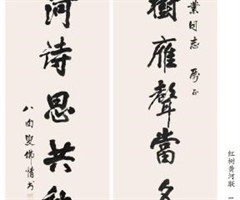 樹雁聲當
業同志 属正
河诗思共秋
八旬叟佛情书
红树黄河联